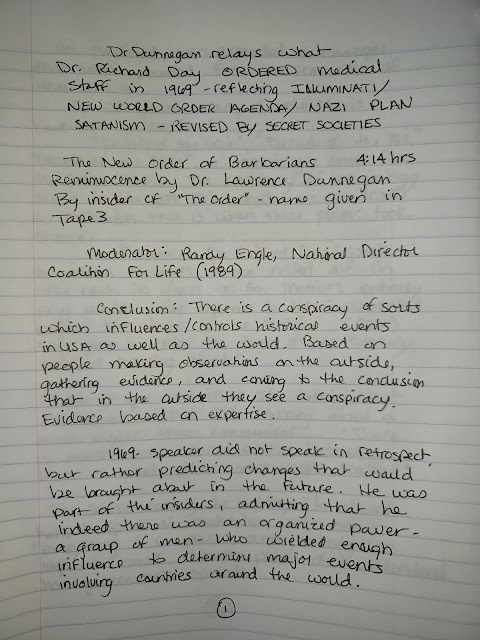 Dr Dunnegan relays what
Dr. Richard Day ORDERED medical
staff in 1969 - reflecting ILLUMINATI/
NEW WORLD ORDER AGENDA/ NAZI PLAN
SATANISM - REVISED BY SECRET SOCIETIES
The New Order of Barbarians 4:14 hrs
Reminiscence by Dr. Lawrence Dunnegan
By insider of "The Order" - name given in
Tape 3
Moderator: Randy Engle, National Director
Coalition For Life (1989)
Conclusion: There is a conspiracy of sorts
which influences/controls historical events
in USA as well as the world. Based on
people making observations on the outside,
gathering evidence, and coming to the conclusion
that in the outside they see a conspiracy.
Evidence based on expertise.
1969- speaker did not speak in retrospect,
but rather predicting changes that would
be brought about in the future. He was
part of the insiders, admitting that he
indeed there was an organized power -
a group of men - who wielded enough
influence to determine major events
involving countries around the world.
1